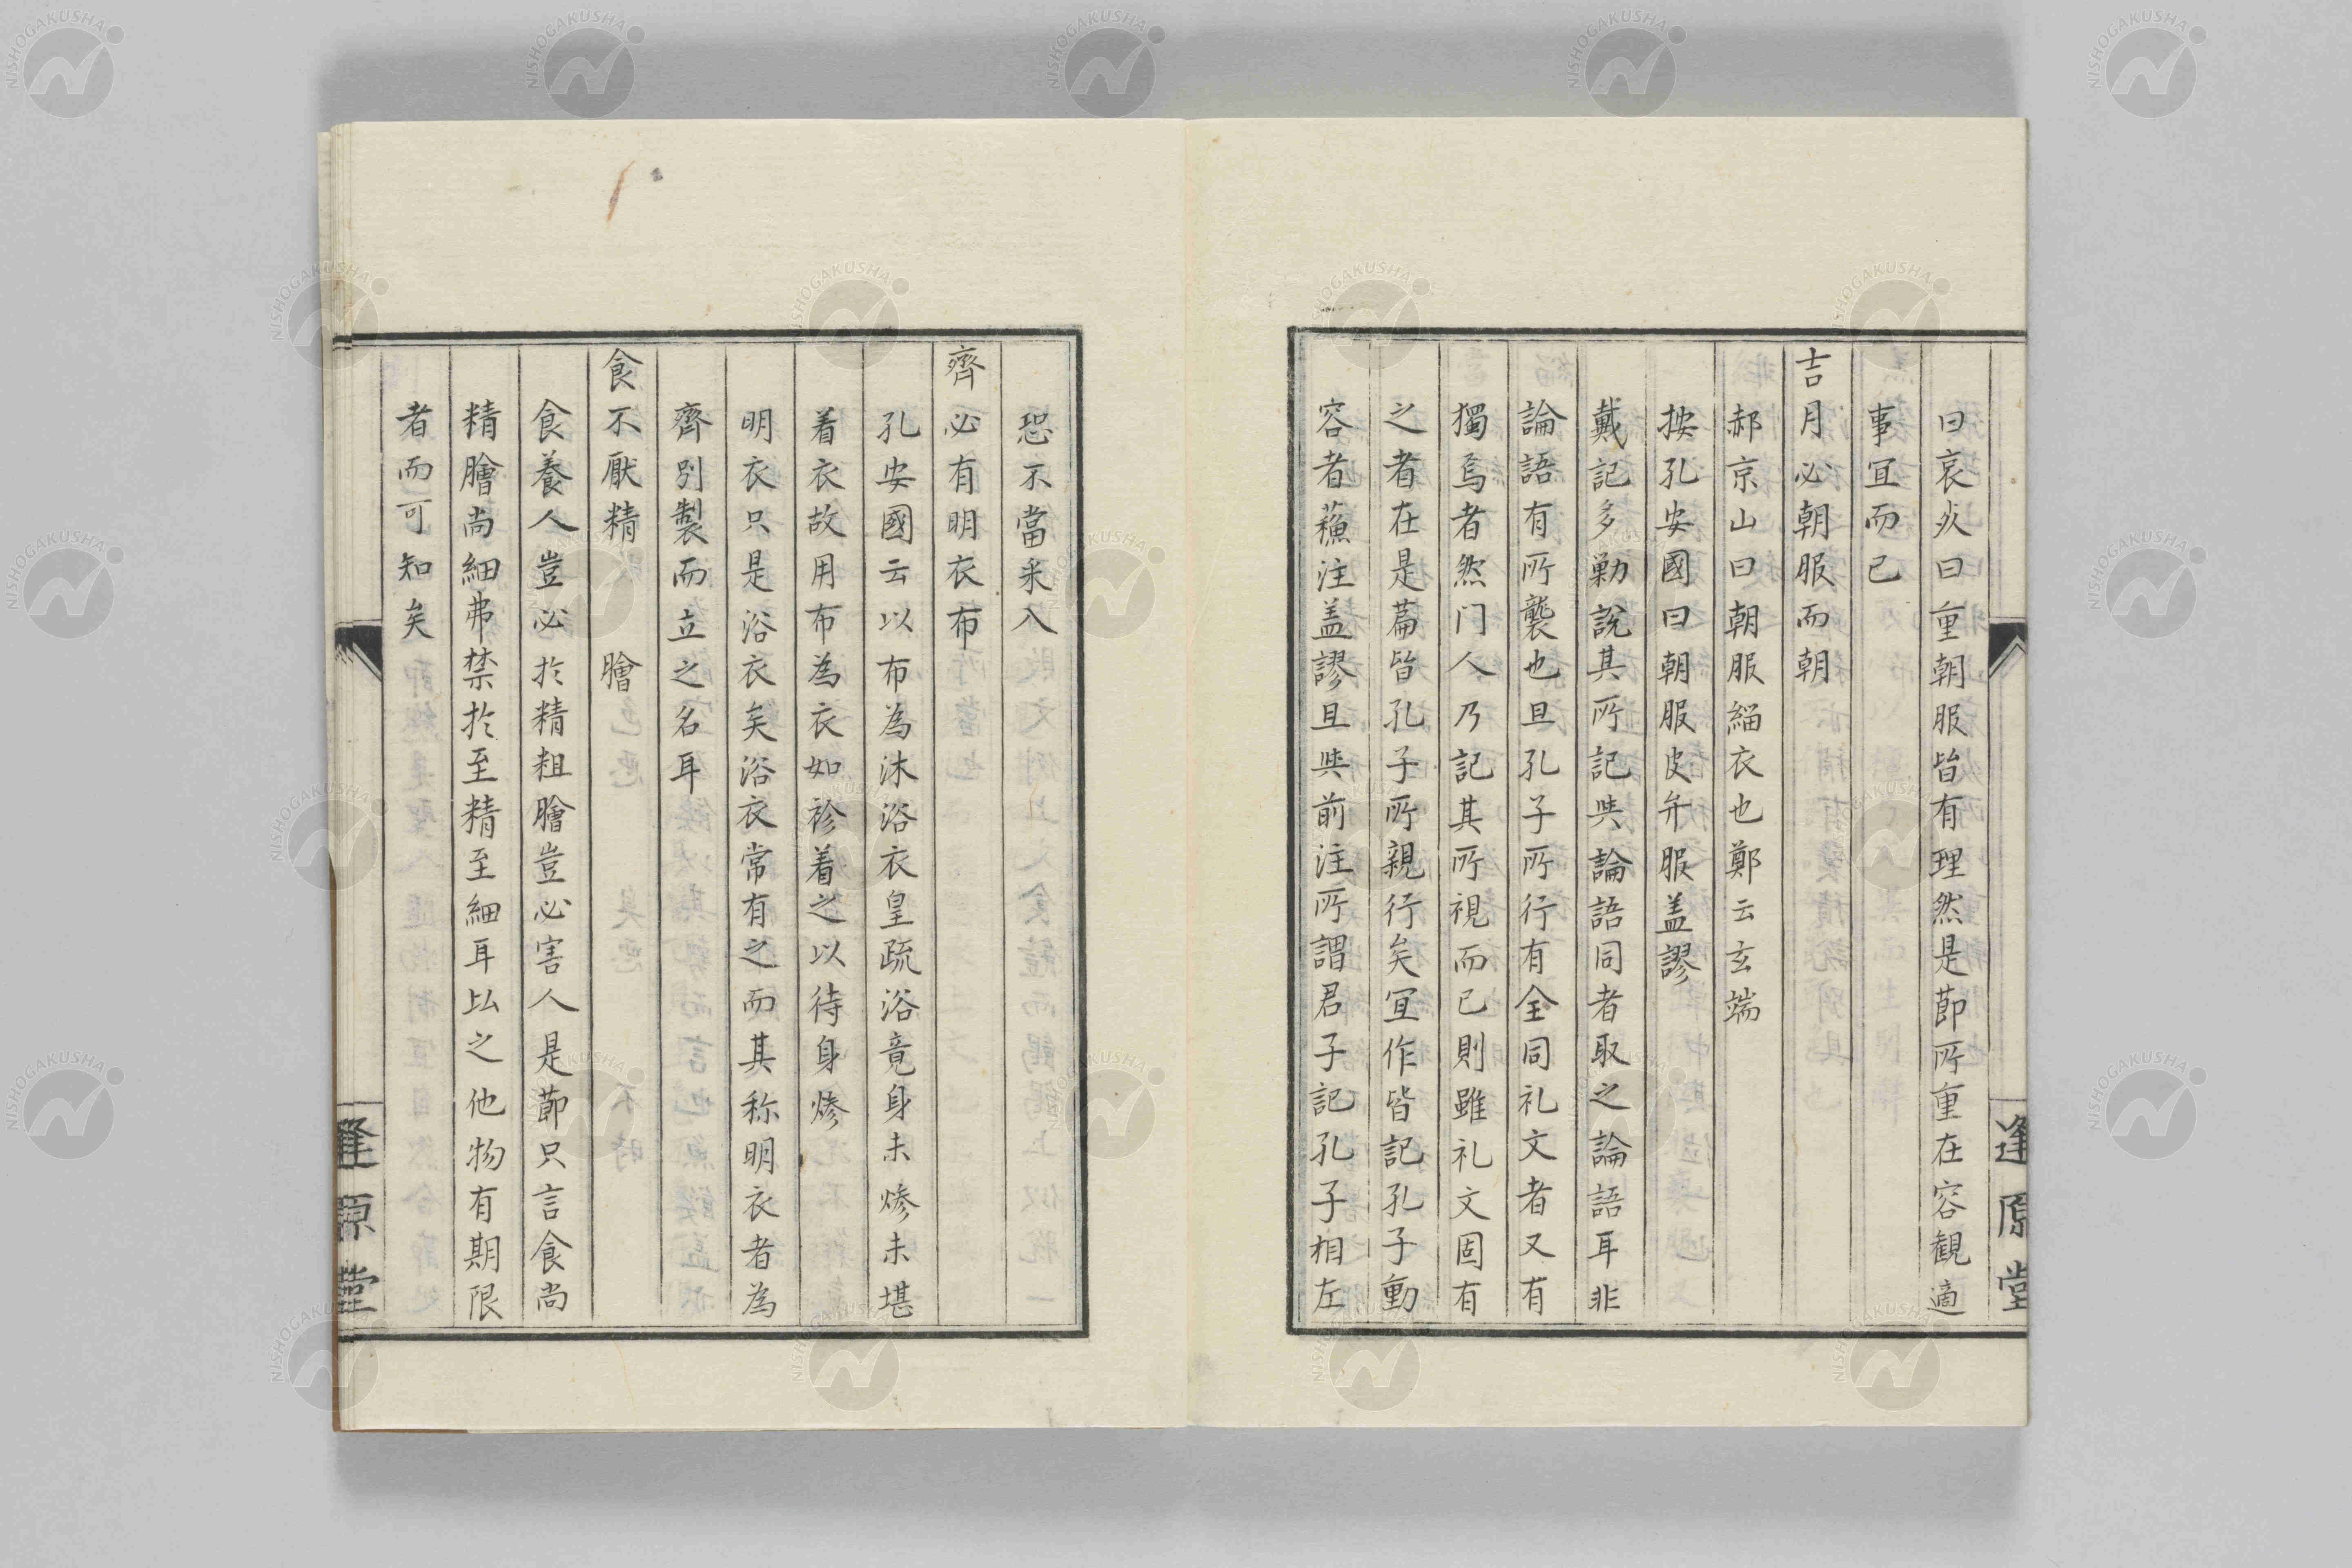 曰哀炎曰重朝服皆有理然是莭所重在容観適
事冝而已
吉月必朝服而朝
郝京山曰朝服緇衣也鄭云玄端
按孔安國曰朝服皮弁服盖謬
戴記多勦說其所記與論語同者取之論語耳非
論語有所襲也且孔子所行有全同礼文者又有
獨焉者然门人乃記其所視而已則雖礼文固有
之者在是萹皆孔子所親行矣冝作皆記孔子動
容者蘓注盖謬且與前注所謂君子記孔子相左
逢原堂
恐不當采入
齊必有明衣布
孔安國云以布為沐浴衣皇疏浴竟身未燥未堪
着衣故用布為衣如衫着之以待身燥
明衣只是浴衣矣浴衣常有之而其称明衣者為
齊别製而立之名耳
食不厭精 膾 臭惡 不時
食養人豈必扵精粗膾豈必害人是莭只言食尚
精膾尚細弗禁扵至精至細耳㠯之他物有期限
者而可知矣
逢原堂
NISHOGAKUSHA